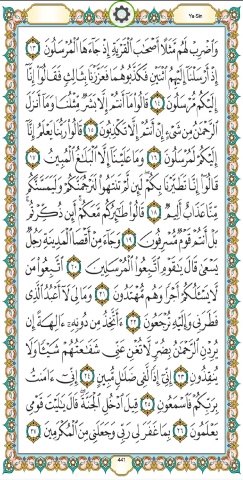 Ya-Sin
وَاضْرِبْ لَهُم مَّثَلًا أَصْحَٰبَ الْقَرْيَةِ إِذْ جَآءَهَا الْمُرْسَلُونَ ١٣
إِذْ أَرْسَلْنَآ إِلَيْهِمُ اثْنَيْنِ فَكَذَّبُوهُمَا فَعَزَّزْنَا بِثَالِثٍ فَقَالُوٓا إِنَّآ
إِلَيْكُم مُّرْسَلُونَ ١٤ قَالُوا مَآ أَنتُمْ إِلَّا بَشَرٌ مِّثْلُنَا وَمَآ أَنزَلَ
الرَّحْمَٰنُ مِن شَىْءٍ إِنْ أَنتُمْ إِلَّا تَكْذِبُونَ ١٥ قَالُوا رَبُّنَا يَعْلَمُ إِنَّآ
إِلَيْكُمْ لَمُرْسَلُونَ ١٦ وَمَا عَلَيْنَآ إِلَّا الْبَلَٰغُ الْمُبِينُ ١٧
قَالُوٓا إِنَّا تَطَيَّرْنَا بِكُمْ لَئِن لَّمْ تَنتَهُوا لَنَرْجُمَنَّكُمْ وَلَيَمَسَّنَّكُم
مِّنَّا عَذَابٌ أَلِيمٌ ١٨ قَالُوا طَٰٓئِرُكُم مَّعَكُمْ أَئِن ذُكِّرْتُم
بَلْ أَنتُمْ قَوْمٌ مُّسْرِفُونَ ١٩ وَجَآءَ مِنْ أَقْصَا الْمَدِينَةِ رَجُلٌ
يَسْعَىٰ قَالَ يَٰقَوْمِ اتَّبِعُوا الْمُرْسَلِينَ ٢٠ اتَّبِعُوا مَن
لَّا يَسْـَٔلُكُمْ أَجْرًا وَهُم مُّهْتَدُونَ ٢١ وَمَا لِىَ لَآ أَعْبُدُ الَّذِى
فَطَرَنِى وَإِلَيْهِ تُرْجَعُونَ ٢٢ ءَأَتَّخِذُ مِن دُونِهِۦٓ ءَالِهَةً إِن
يُرِدْنِ الرَّحْمَٰنُ بِضُرٍّ لَّا تُغْنِ عَنِّى شَفَٰعَتُهُمْ شَيْـًٔا وَلَا
يُنقِذُونِ ٢٣ إِنِّىٓ إِذًا لَّفِى ضَلَٰلٍ مُّبِينٍ ٢٤ إِنِّىٓ ءَامَنتُ
بِرَبِّكُمْ فَاسْمَعُونِ ٢٥ قِيلَ ادْخُلِ الْجَنَّةَ قَالَ يَٰلَيْتَ قَوْمِى
يَعْلَمُونَ ٢٦ بِمَا غَفَرَ لِى رَبِّى وَجَعَلَنِى مِنَ الْمُكْرَمِينَ ٢٧
441